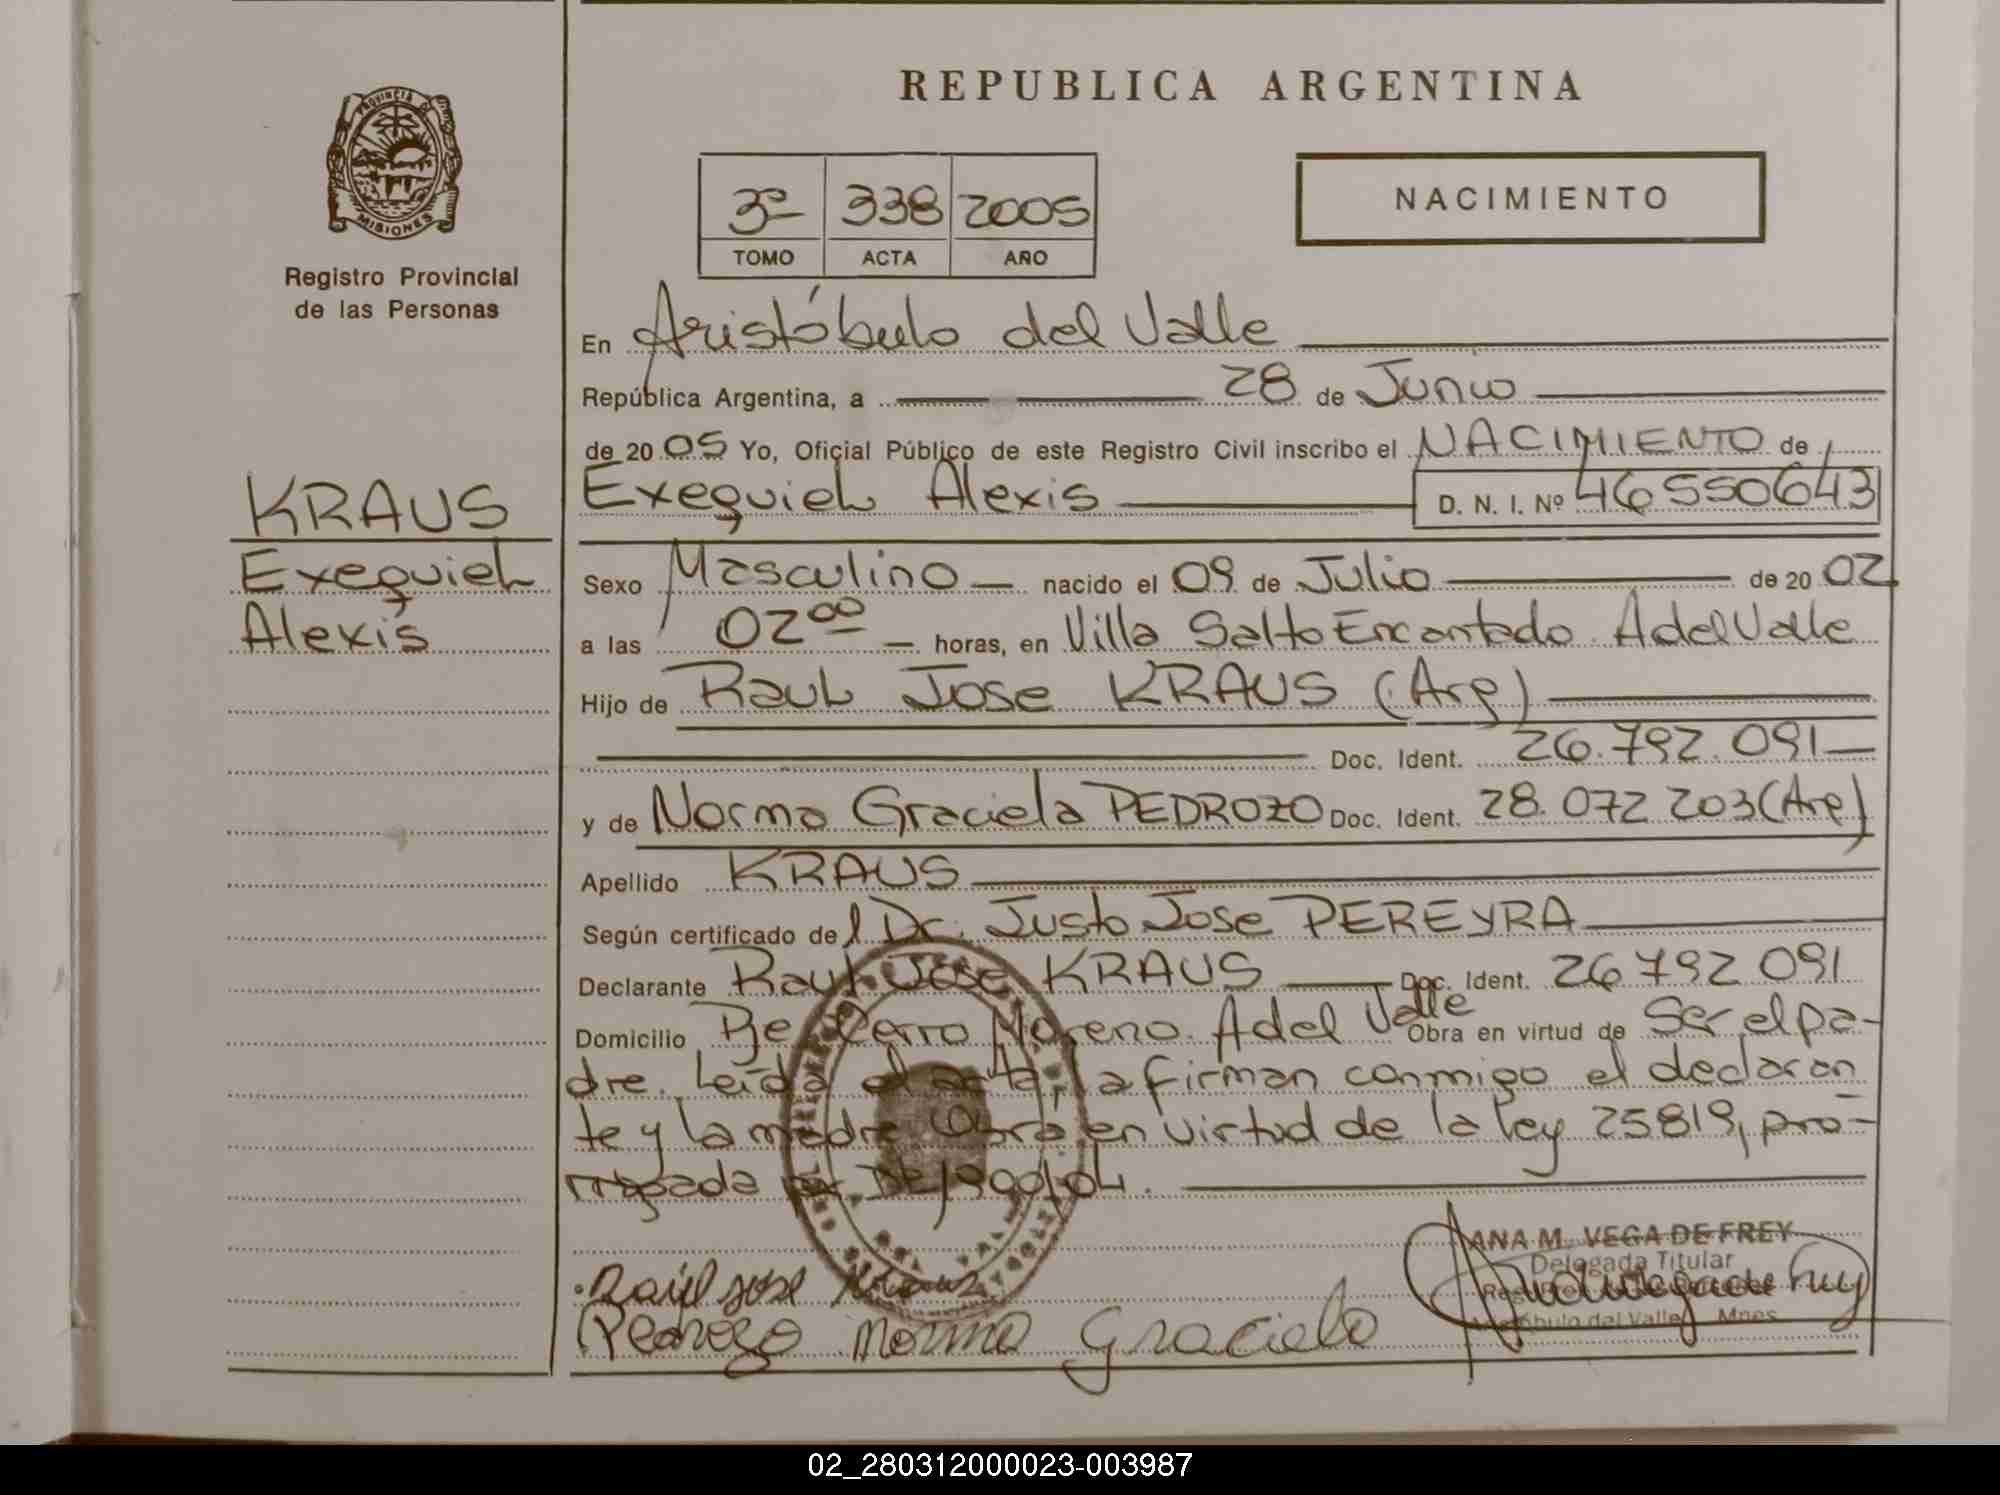 REPUBLICA ARGENTINA
PROVINCIA D
MISIONES
Registro Provincial
de las Personas
3º 338 2005
TOMO ACTA AÑO
NACIMIENTO
En Aristóbulo del Valle
República Argentina, a 28 de Junio
de 20 05 Yo, Oficial Público de este Registro Civil inscribo el NACIMIENTO de
KRAUS
Exequiel
Alexis
Exequiel Alexis D. N. I. Nº 46550643
Sexo Masculino nacido el 09 de Julio de 20 02
a las 02 00 horas, en Villa Salto Encantado. A del Valle
Hijo de Raul Jose KRAUS (Arg)
Doc. Ident. 26.792.091
y de Norma Graciela PEDROZO Doc. Ident. 28.072 203 (Arg)
Apellido KRAUS
Según certificado del Dr. Justo Jose PEREYRA
Declarante Raul Jose KRAUS Doc. Ident. 26 792 091
Domicilio Pje Cerro Moreno. A del Valle Obra en virtud de Ser el pa-
dre. Leída el acta, la firman conmigo el declaran
te y la madre Obra en virtud de la ley 25819, pro-
rrogada por
Raúl José Kraus
Pedrozo Norma Graciela
ANA M. VEGA DE FREY
Delegada Titular
del Valle Mnes
02_280312000023-003987